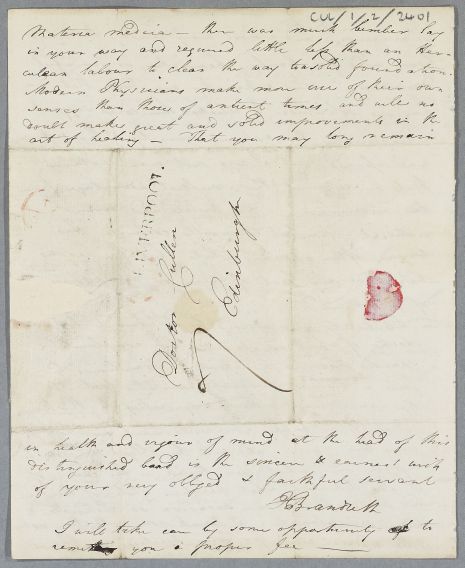 CUL/1/2/2401
Materia medica — there was much lumber lay
in your way and required little less than an Her-
culean labour to clear the way to a solid foundation.
Modern Physicians make more use of their own
senses than those of antient times and will no
doubt make great and solid improvements in the
art of healing — That you may long remain
LIVERPOOL.
Doctor Cullen
Edinburgh
7
in health and vigour of mind at the head of this
distinguished band is the sincere & earnest wish
of your very obliged & faithful servant
JBrandreth
I will take care by some opportunity to
remit you a proper fee —